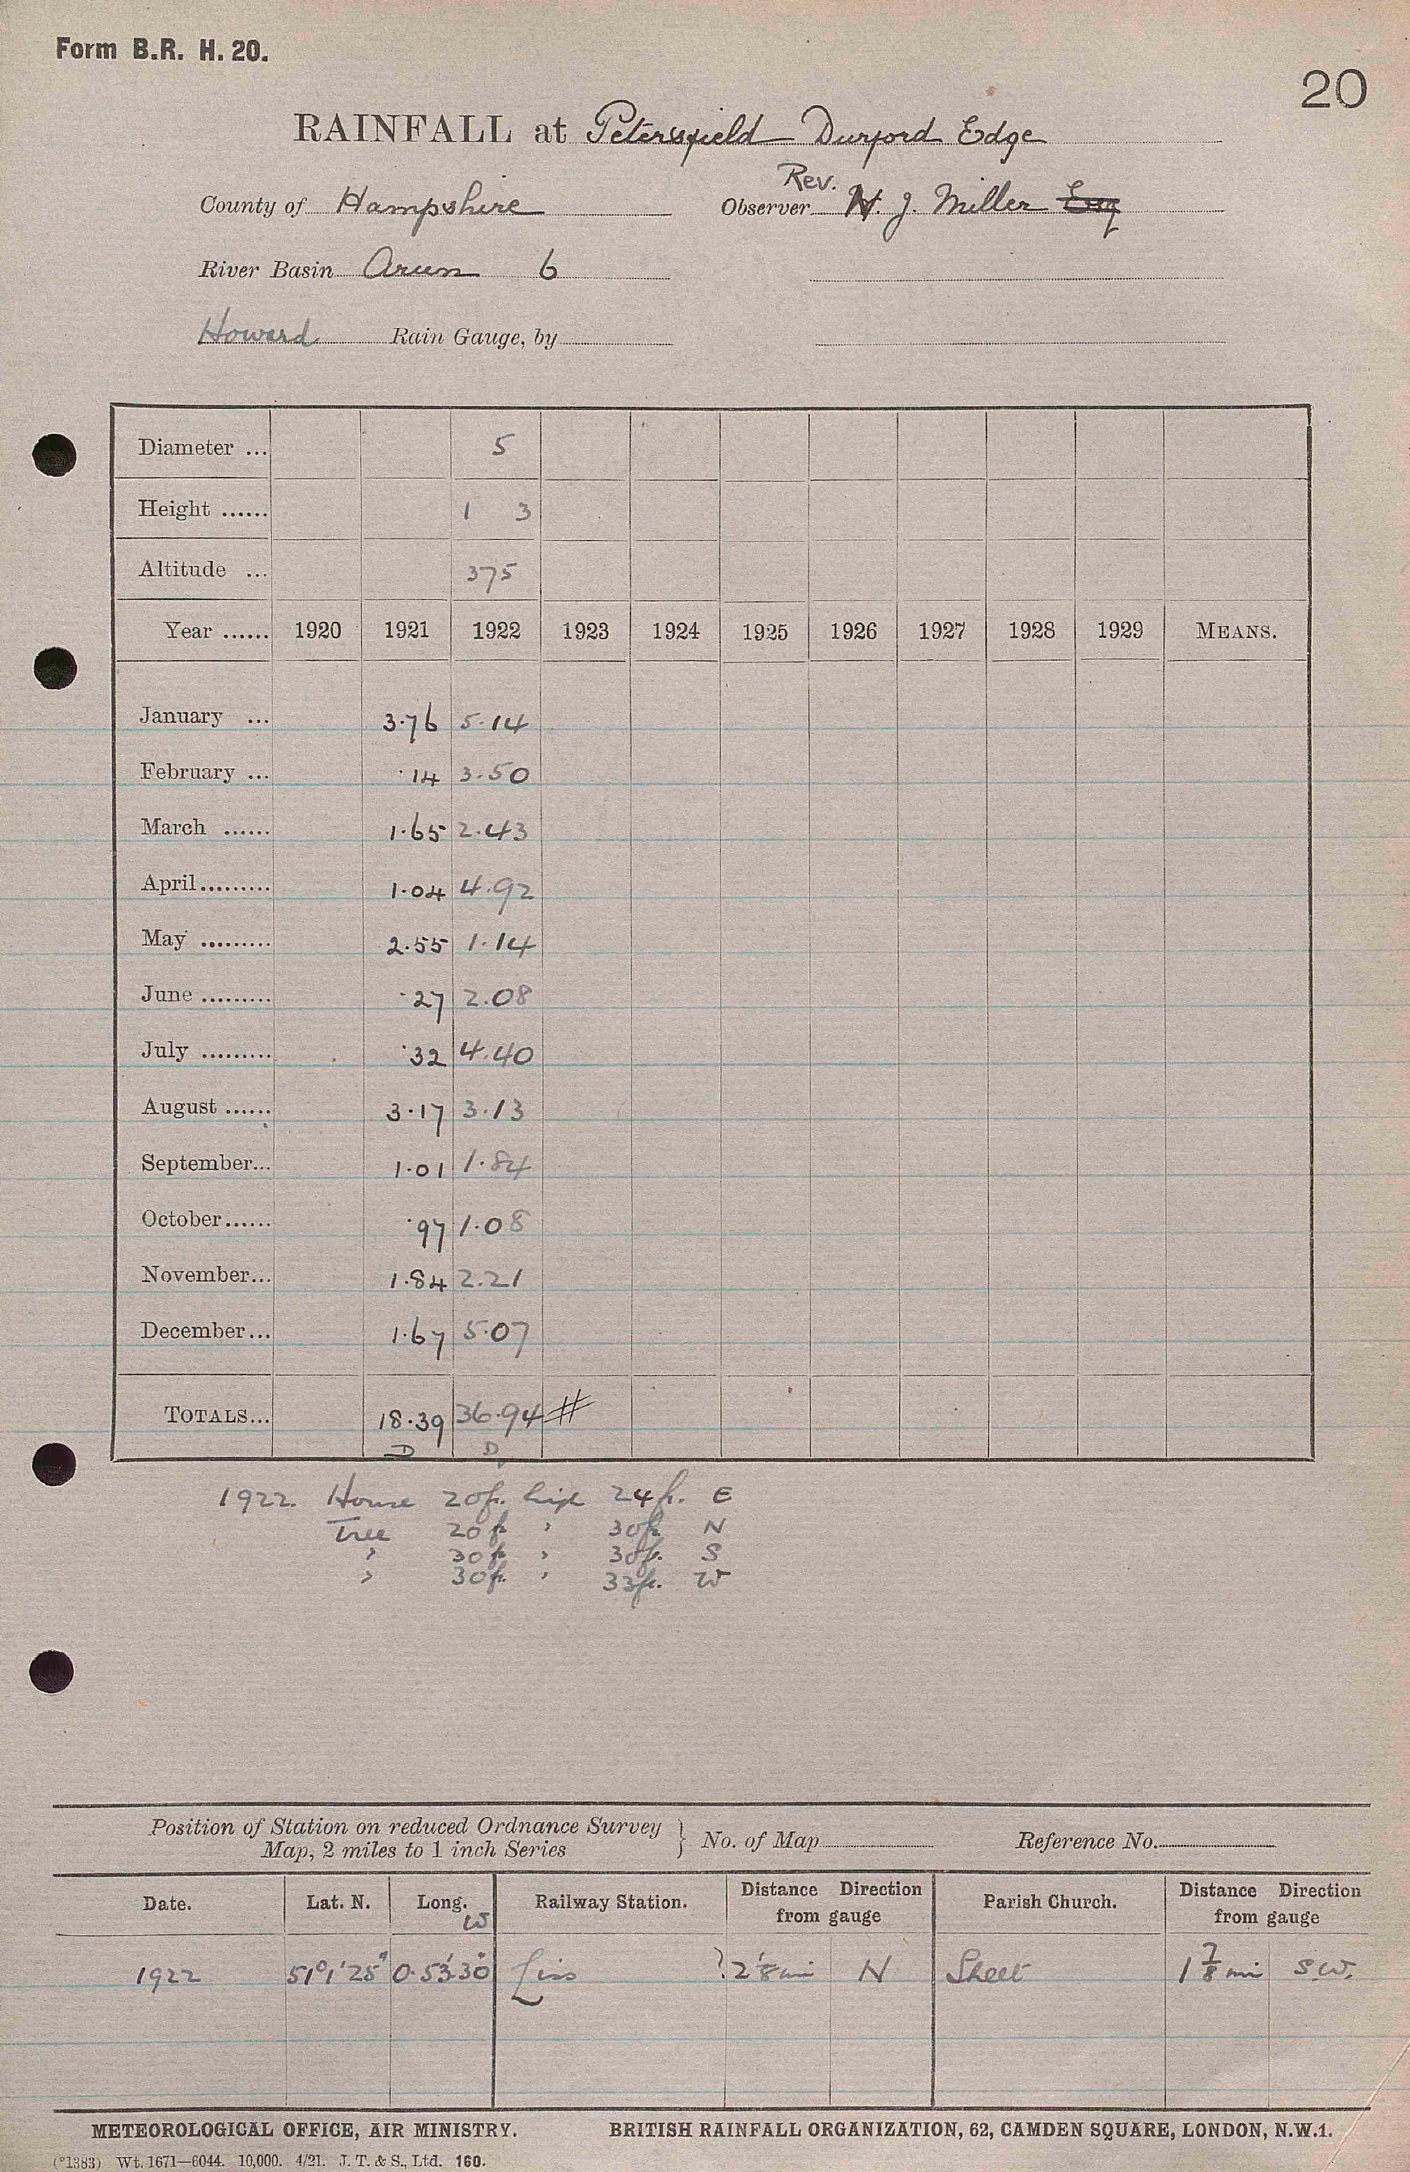 Form B.R. H. 20.
20
RAINFALL at Petersfield Durford Edge
Rev.
County of Hampshire Observer H. J. Miller Esq
River Basin Arun 6
Howard Rain Gauge, by
Diameter ... 5
Height ...... 1 3
Altitude ... 375
Year ...... 1920 1921 1922 1923 1924 1925 1926 1927 1928 1929 MEANS.
January ... 3.76 5.14
February ... .14 3.50
March ...... 1.65 2.43
April ......... 1.04 4.92
May ......... 2.55 1.14
June ......... .27 2.08
July ......... .32 4.40
August ...... 3.17 3.13
September... 1.01 1.84
October...... .97 1.08
November... 1.84 2.21
December... 1.67 5.07
TOTALS... 18.39 36.94 #
D D
1922 House 20ft. high 24ft. E
Tree 20ft " 30ft N
" 30ft " 30ft. S
" 30ft. " 33ft. W
Position of Station on reduced Ordnance Survey
Map, 2 miles to 1 inch Series } No. of Map Reference No.
Date. Lat. N. Long. W Railway Station. Distance Direction from gauge Parish Church. Distance Direction from gauge
1922 51°1'25" 0.53'.30" Liss ?2 1/8 mi N Sheet 1 7/8 mi S.W.
METEOROLOGICAL OFFICE, AIR MINISTRY. BRITISH RAINFALL ORGANIZATION, 62, CAMDEN SQUARE, LONDON, N.W.1.
(*1383) Wt. 1671—6044. 10,000. 4/21. J. T. & S., Ltd. 160.